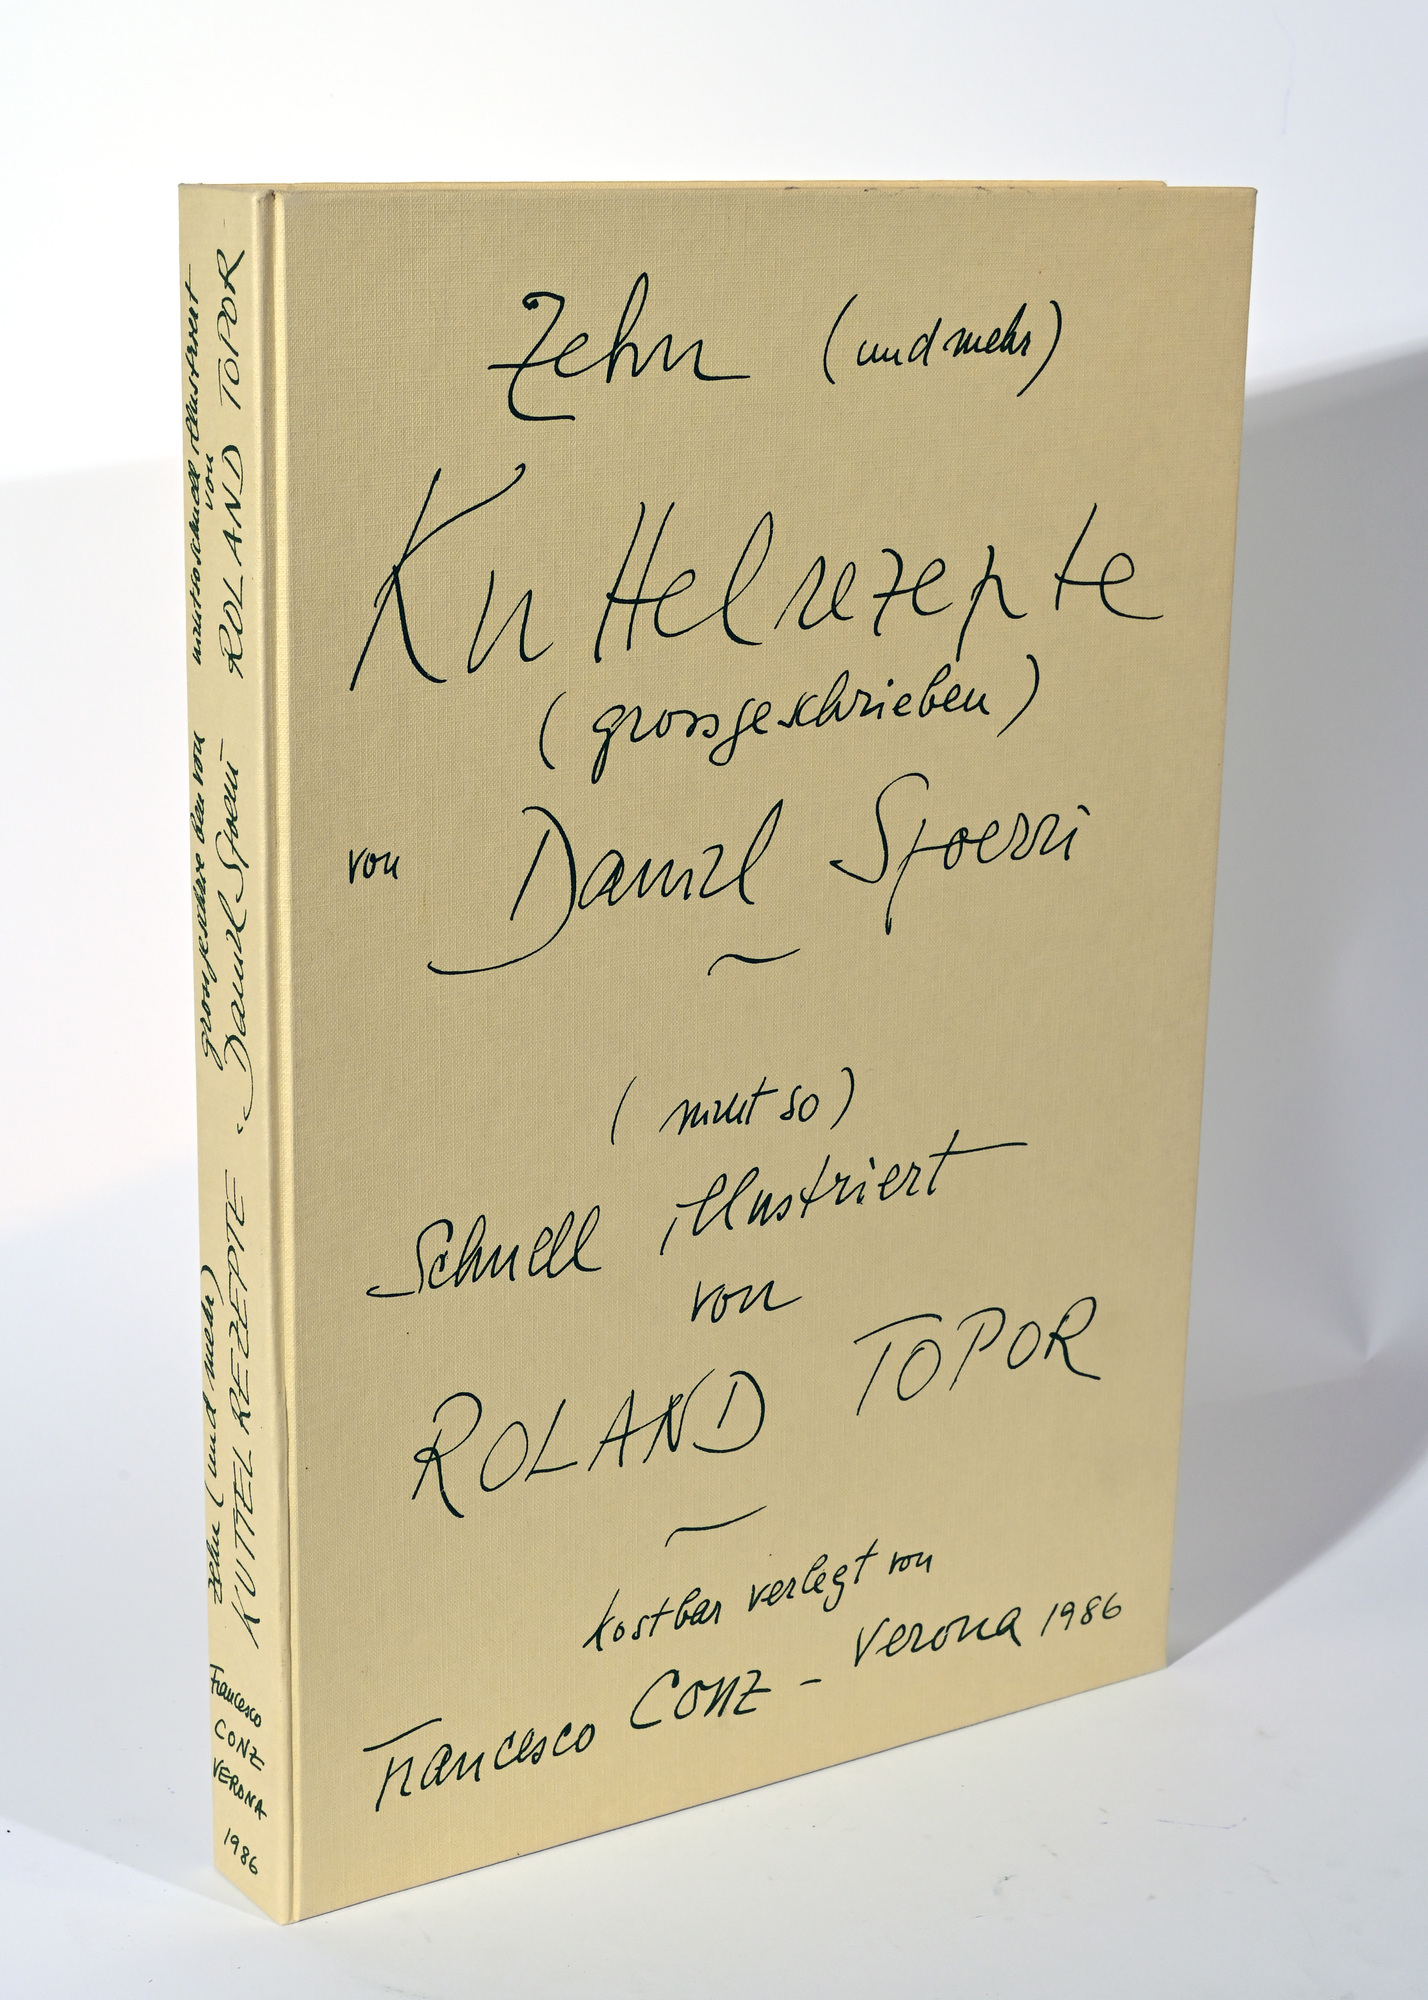 Zehn (und mehr)
Kuttelrezepte
(grossgeschrieben)
von Daniel Spoerri
(nicht so)
Schnell illustriert
von
ROLAND TOPOR
kostbar verlegt von
Francesco Conz – Verona 1986
zehn (und mehr)
KUTTEL REZEPTE
grossgeschrieben von
Daniel Spoerri
nicht so schnell illustriert
von
ROLAND TOPOR
Francesco
CONZ
VERONA
1986